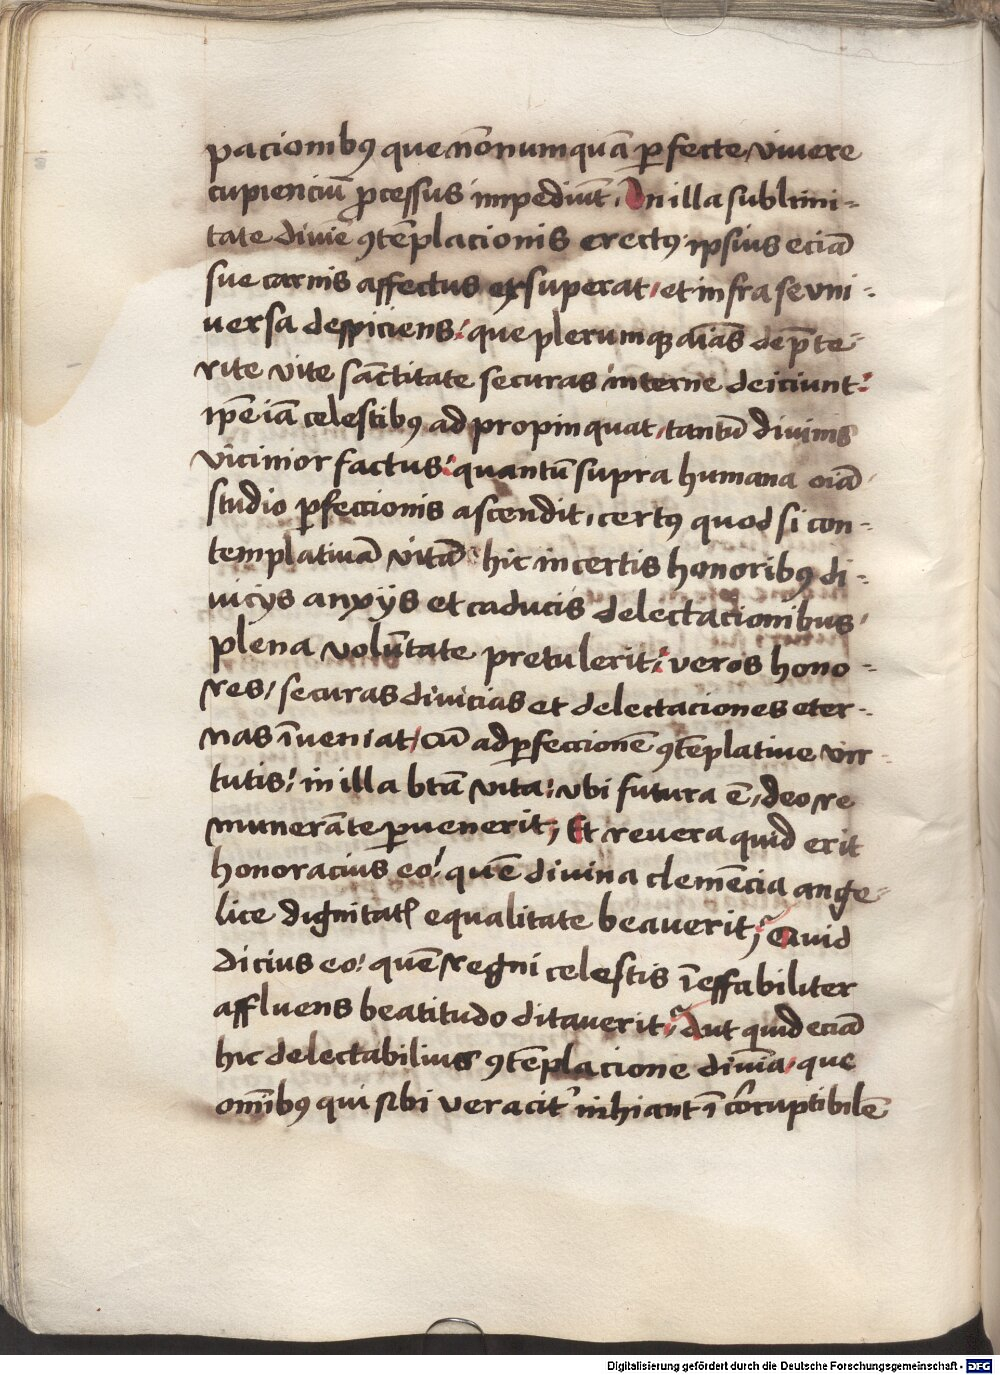 pacionibꝯ que nōnumquā ꝑfecte vivere
cupienciū ꝓcessus impediūt. In illa sublimi-
tate divīe ꝯtēplacionis erectꝯ ipsius eciā
sue carnis affectus exsuperat / et infra se vni-
versa despiciens: que plerumqꝫ aīas de p̄te-
rite vite sāctitate securas interne deiciunt:
ip̄e iā celestibꝯ ad propinquat / tantū divinis
vicinior factus: quantū supra humana oīa
studio ꝑfeccionis ascendit, certꝯ quod si con-
templativā vitā hic incertis honoribꝯ di-
vicijs anxijs et caducis delectacionibus /
plena volūtate pretulerit: veros hono-
res / securas divicias et delectaciones eter-
nas īveniat / cū ad ꝑfeccionē ꝯtēplative vir-
tutis: in illa btā vita: vbi futura ē, deo re
munerāte ꝑvenerit; Et revera quid erit
honoracius eo: quē divina clemēcia ange-
lice dignitatꝭ equalitate beaverit; Quid
dicius eo: quē regni celestis īeffabiliter
affluens beatitudo ditaverit; Aut quid eciā
hic delectabilius ꝯtēplacione divīa, que
omībꝯ qui sibi veracit' inhiant ī corruptibilē
Digitalisierung gefördert durch die Deutsche Forschungsgemeinschaft - DFG